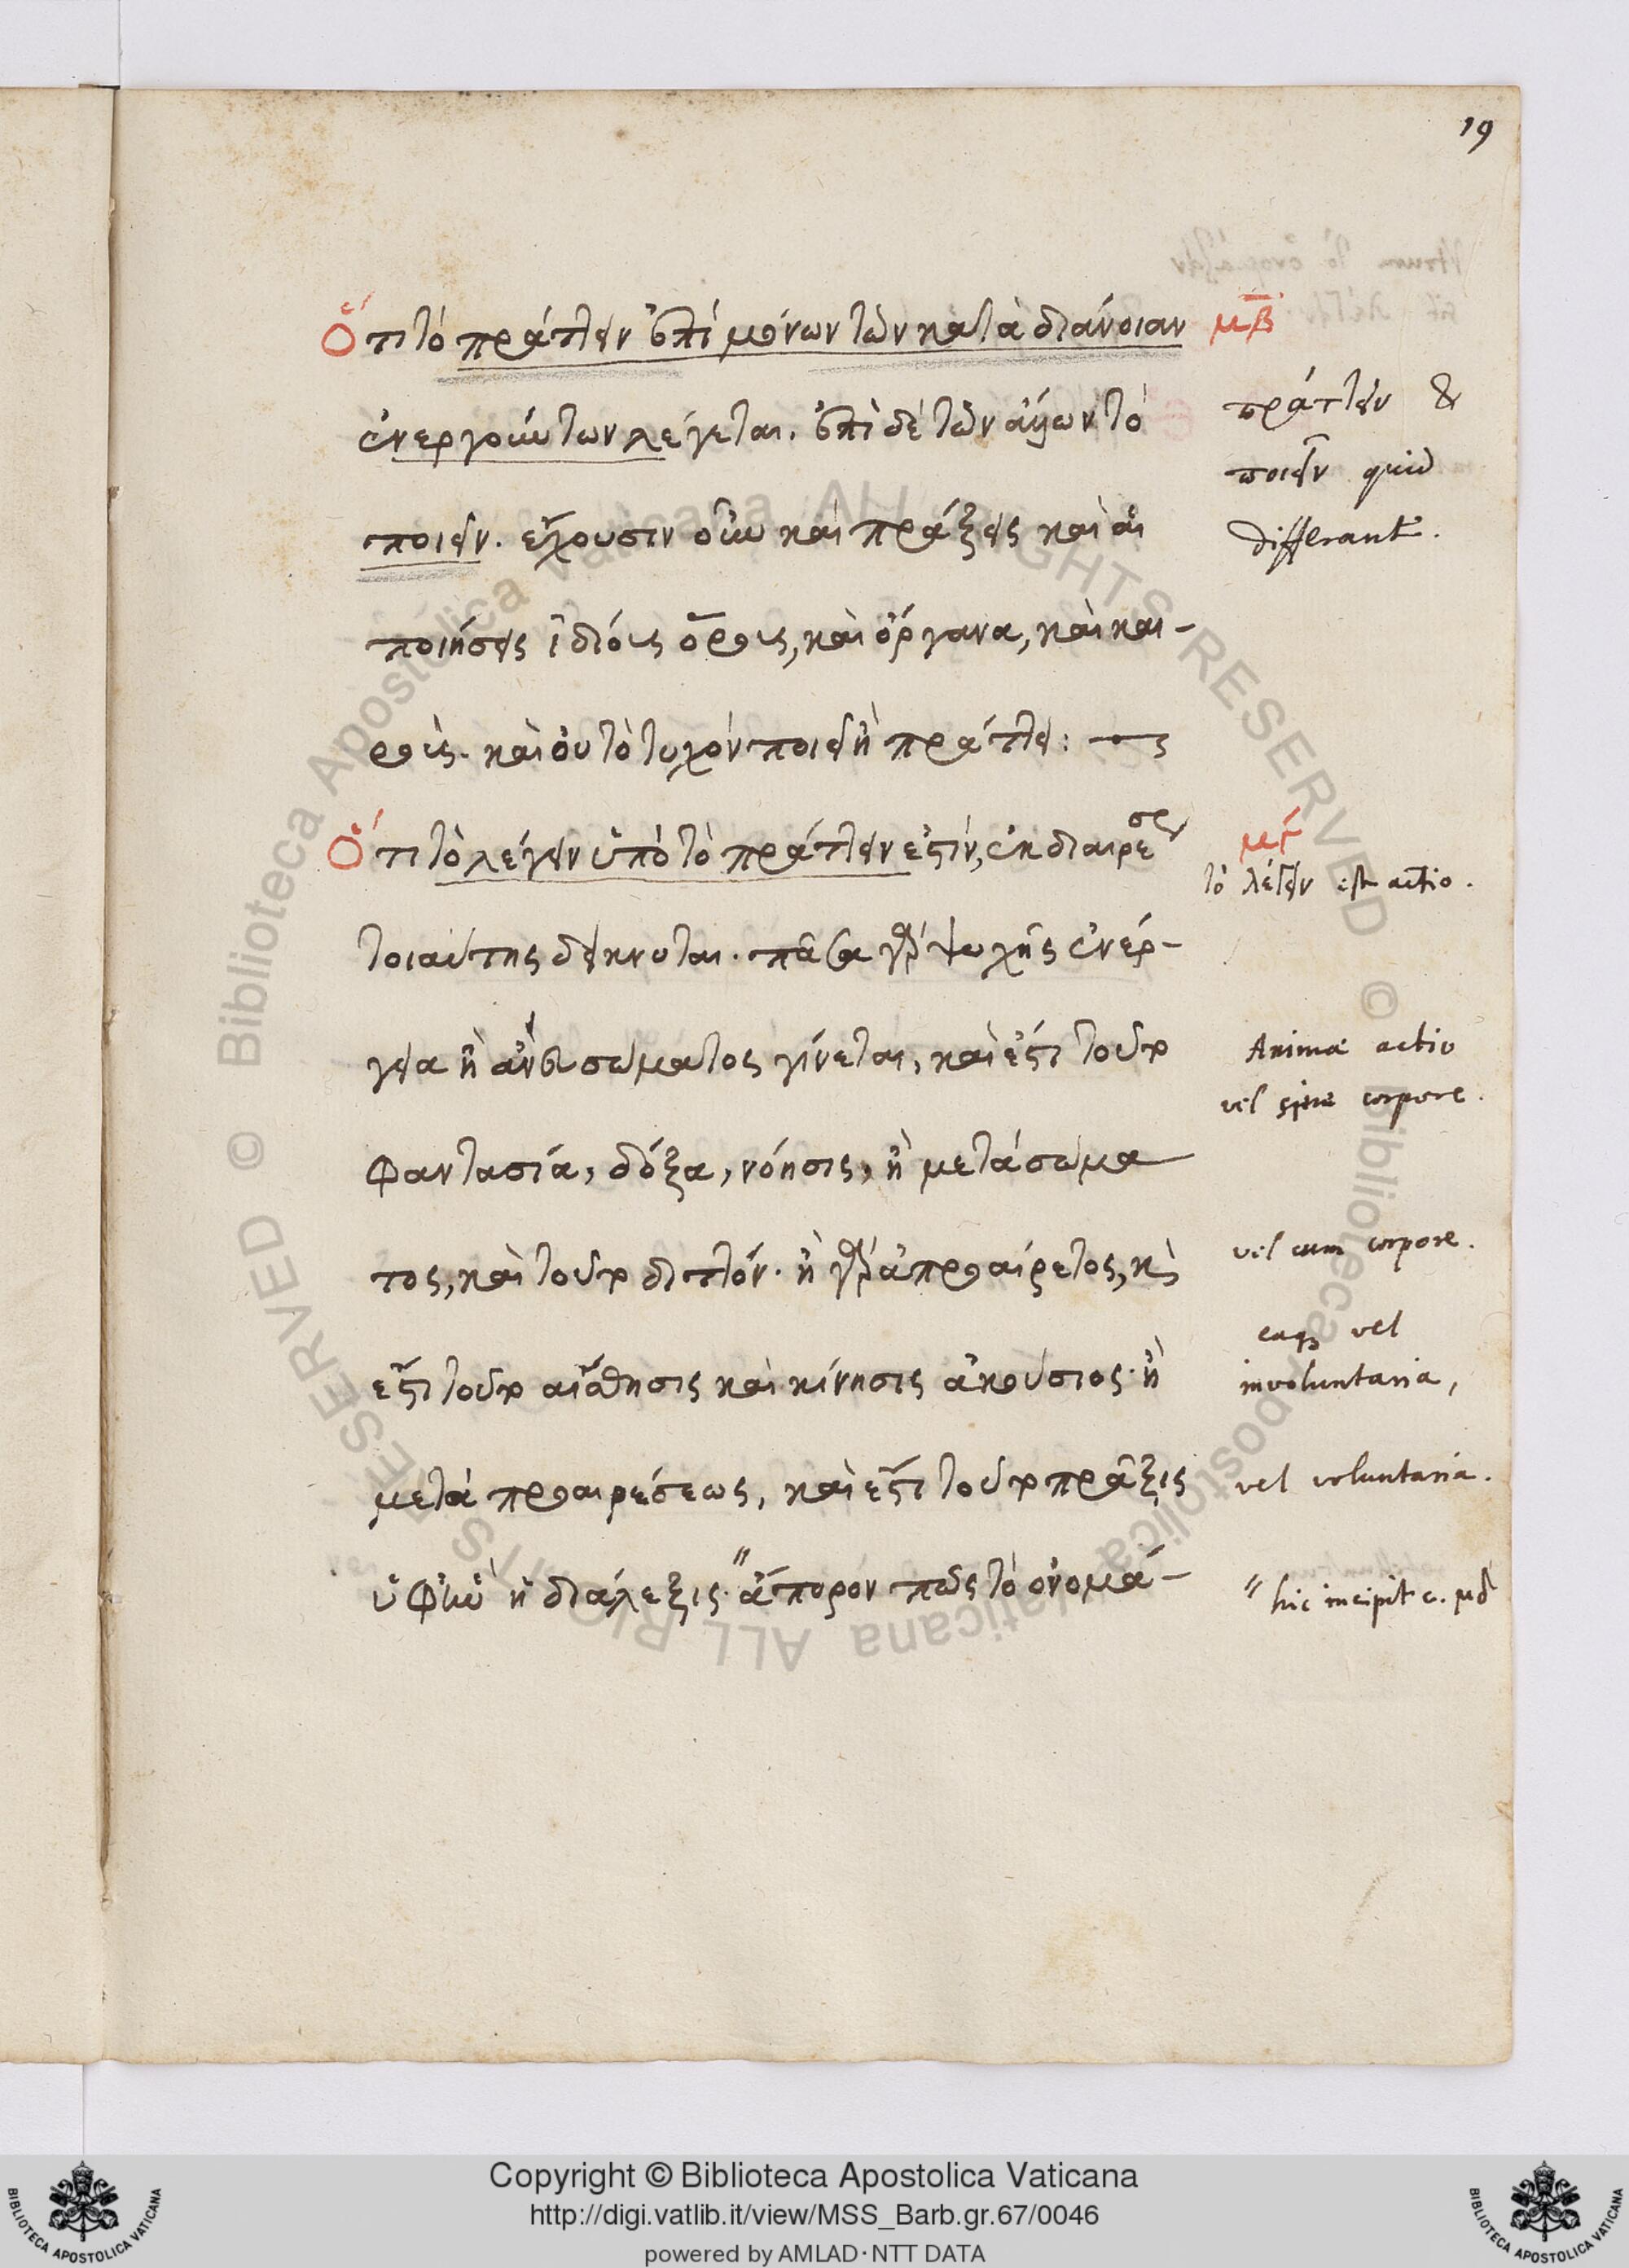 19
Ὅτι τὸ πράττειν ἐπὶ μόνων τῶν κατὰ διάνοιαν
μβ
ἐνεργούντων λέγεται. ἐπὶ δὲ τῶν ἄλλων τὸ
πράττειν &
ποιεῖν. ἔχουσιν οὖν καὶ πράξεις καὶ αἱ
ποιεῖν quid
differant.
ποιήσεις ἰδίους ὅρους, καὶ ὄργανα, καὶ και-
ρούς. καὶ οὐ τὸ τυχὸν ποιεῖ ἢ πράττει:
Ὅτι τὸ λέγειν ὑπὸ τὸ πράττειν ἐστίν, ἐκ διαιρέσε
μγ
τὸ λέγειν est actio.
τοιαύτης δείκνυται. πᾶσα γὰρ ψυχῆς ἐνέρ-
γεια ἢ ἄνευ σώματος γίνεται, καὶ ἔστι τοῦτο
Animæ actio
vel sine corpore.
φαντασία, δόξα, νόησις, ἢ μετὰ σώμα
τος, καὶ τοῦτο διττόν. ἢ γὰρ ἀπροαίρετος, κὶ
vel cum corpore.
eaq3 vel
ἔστι τοῦτο αἴσθησις καὶ κίνησις ἀκούσιος. ἢ
involuntaria,
μετὰ προαιρέσεως, καὶ ἔστι τοῦτο πρᾶξις
vel voluntaria.
ὑφ' ἣν ἡ διάλεξις. " ἄπορον πῶς τὸ ὀνομά-
" hic incipit c. μδ
Copyright © Biblioteca Apostolica Vaticana
http://digi.vatlib.it/view/MSS_Barb.gr.67/0046
powered by AMLAD·NTT DATA